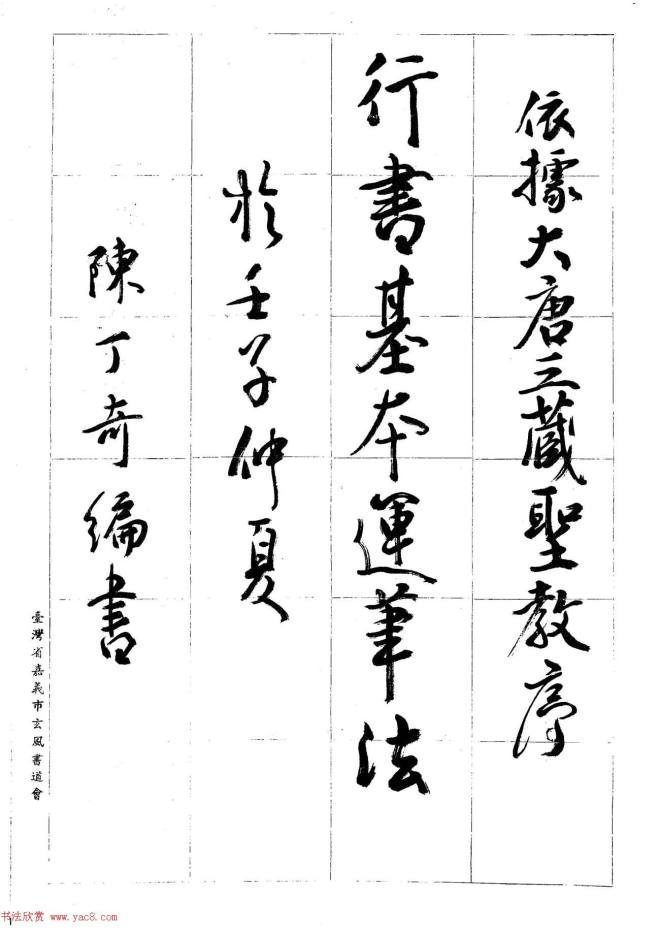 依據大唐三藏聖教序
行書基本運筆法
於壬子仲夏
陳丁奇編書
臺灣省嘉義市玄風書道會
书法欣赏 www.yac8.com
1